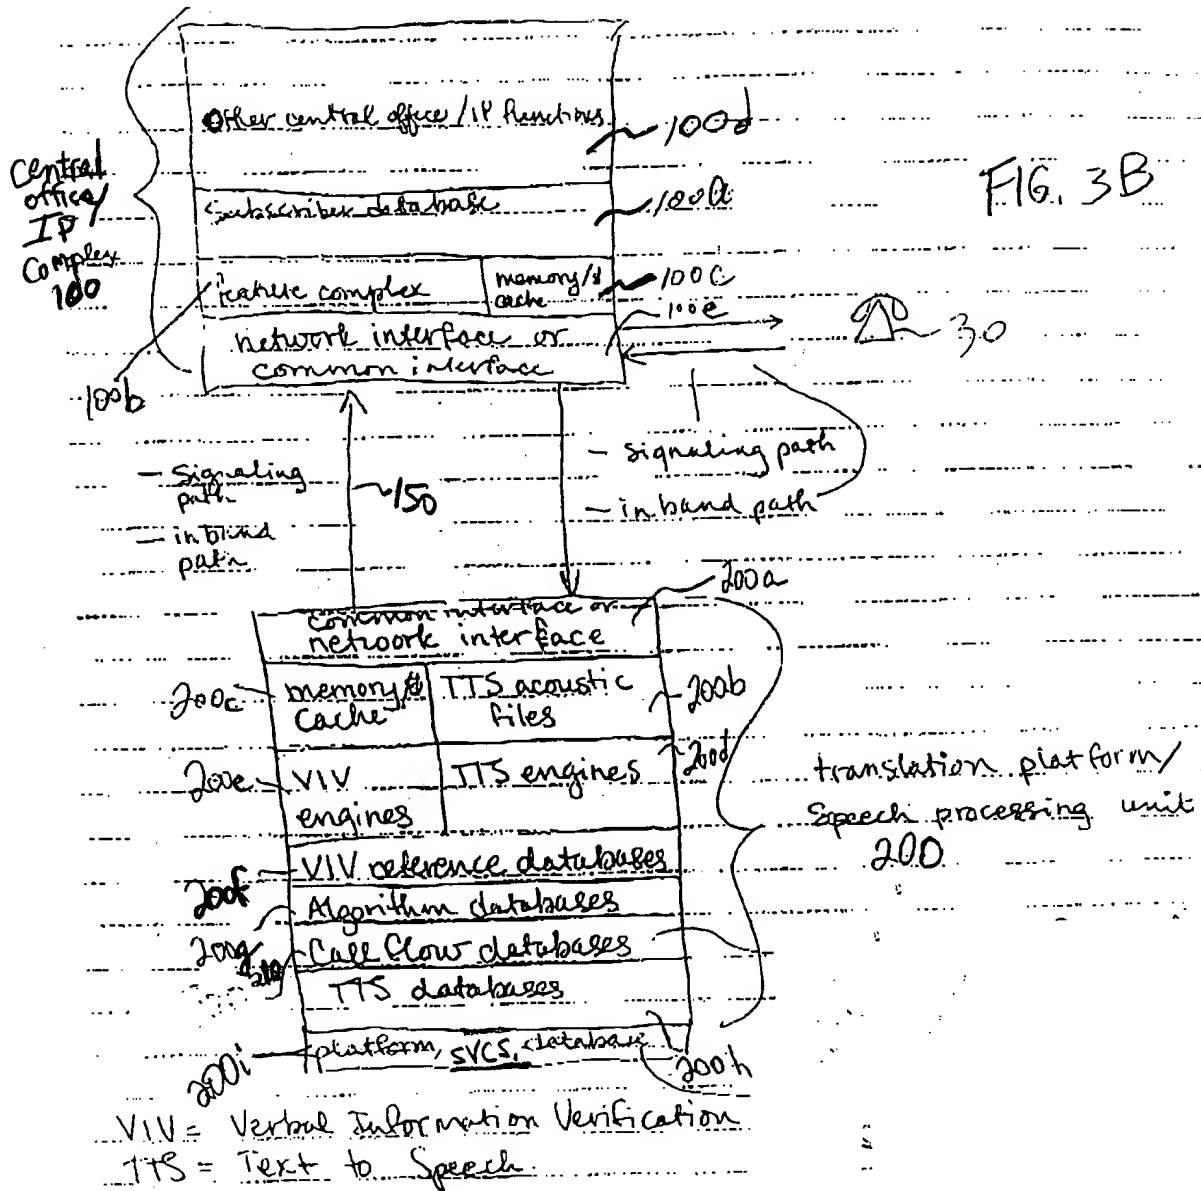 Other central office / IP functions
100d
central
office/
IP
Complex
100
FIG. 3B
Subscriber database
100a
feature complex
memory/&
cache
100c
100e
network interface or
common interface
30
100b
- Signaling
path
- inband
path
150
- signaling path
- in band path
200a
common interface or
network interface
200c
memory &
Cache
TTS acoustic
files
200b
200e
VIV
engines
TTS engines
200d
translation platform/
Speech processing unit
200
200f
VIV reference databases
Algorithm databases
200g
Call Flow databases
TTS databases
200i
platform, SVCS, database
200h
VIV = Verbal Information Verification
TTS = Text to Speech